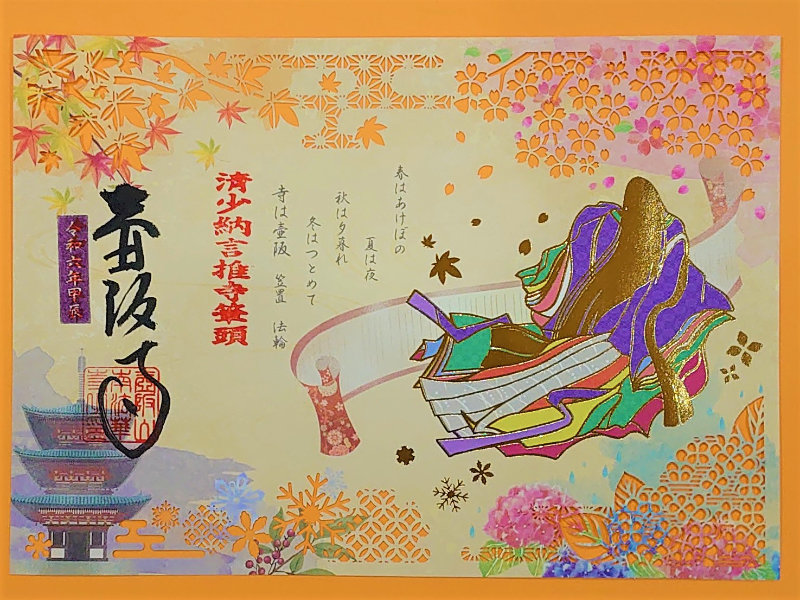 春はあけぼの
夏は夜
秋は夕暮れ
冬はつとめて
寺は壺阪 笠置 法輪
清少納言推寺筆頭
壺阪寺
令和六年甲辰